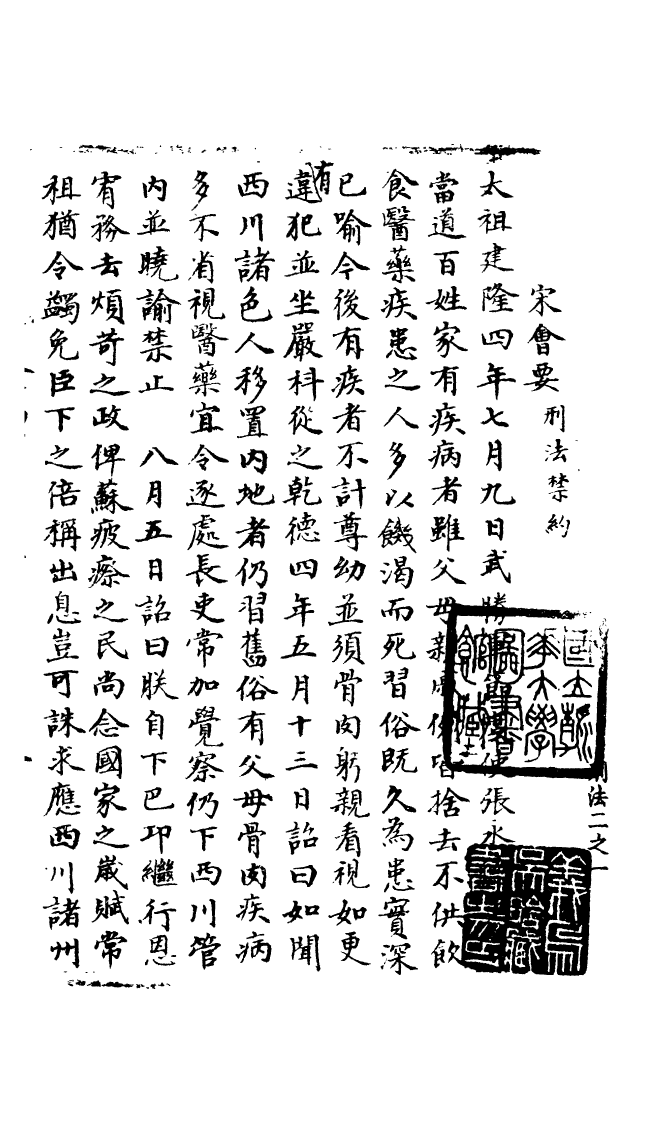 宋會要 刑法禁約
刑法二之一
太祖建隆四年七月九日武勝軍節度使張永
當道百姓家有疾病者雖父母親戚例皆捨去不供飲
食醫藥疾患之人多以饑渴而死習俗既久為患實深
已喻今後有疾者不計尊幼並須骨肉躬親看視如更
有違犯並坐嚴科從之乾德四年五月十三日詔曰如聞
西川諸色人移置內地者仍習舊俗有父母骨肉疾病
多不省視醫藥宜令逐處長吏常加覺察仍下西川管
內並曉諭禁止 八月五日詔曰朕自下巴邛繼行恩
宥務去煩苛之政俾蘇疲瘵之民尚念國家之歲賦常
租猶令蠲免臣下之倍稱出息豈可誅求應西川諸州
國立北平圖書館藏